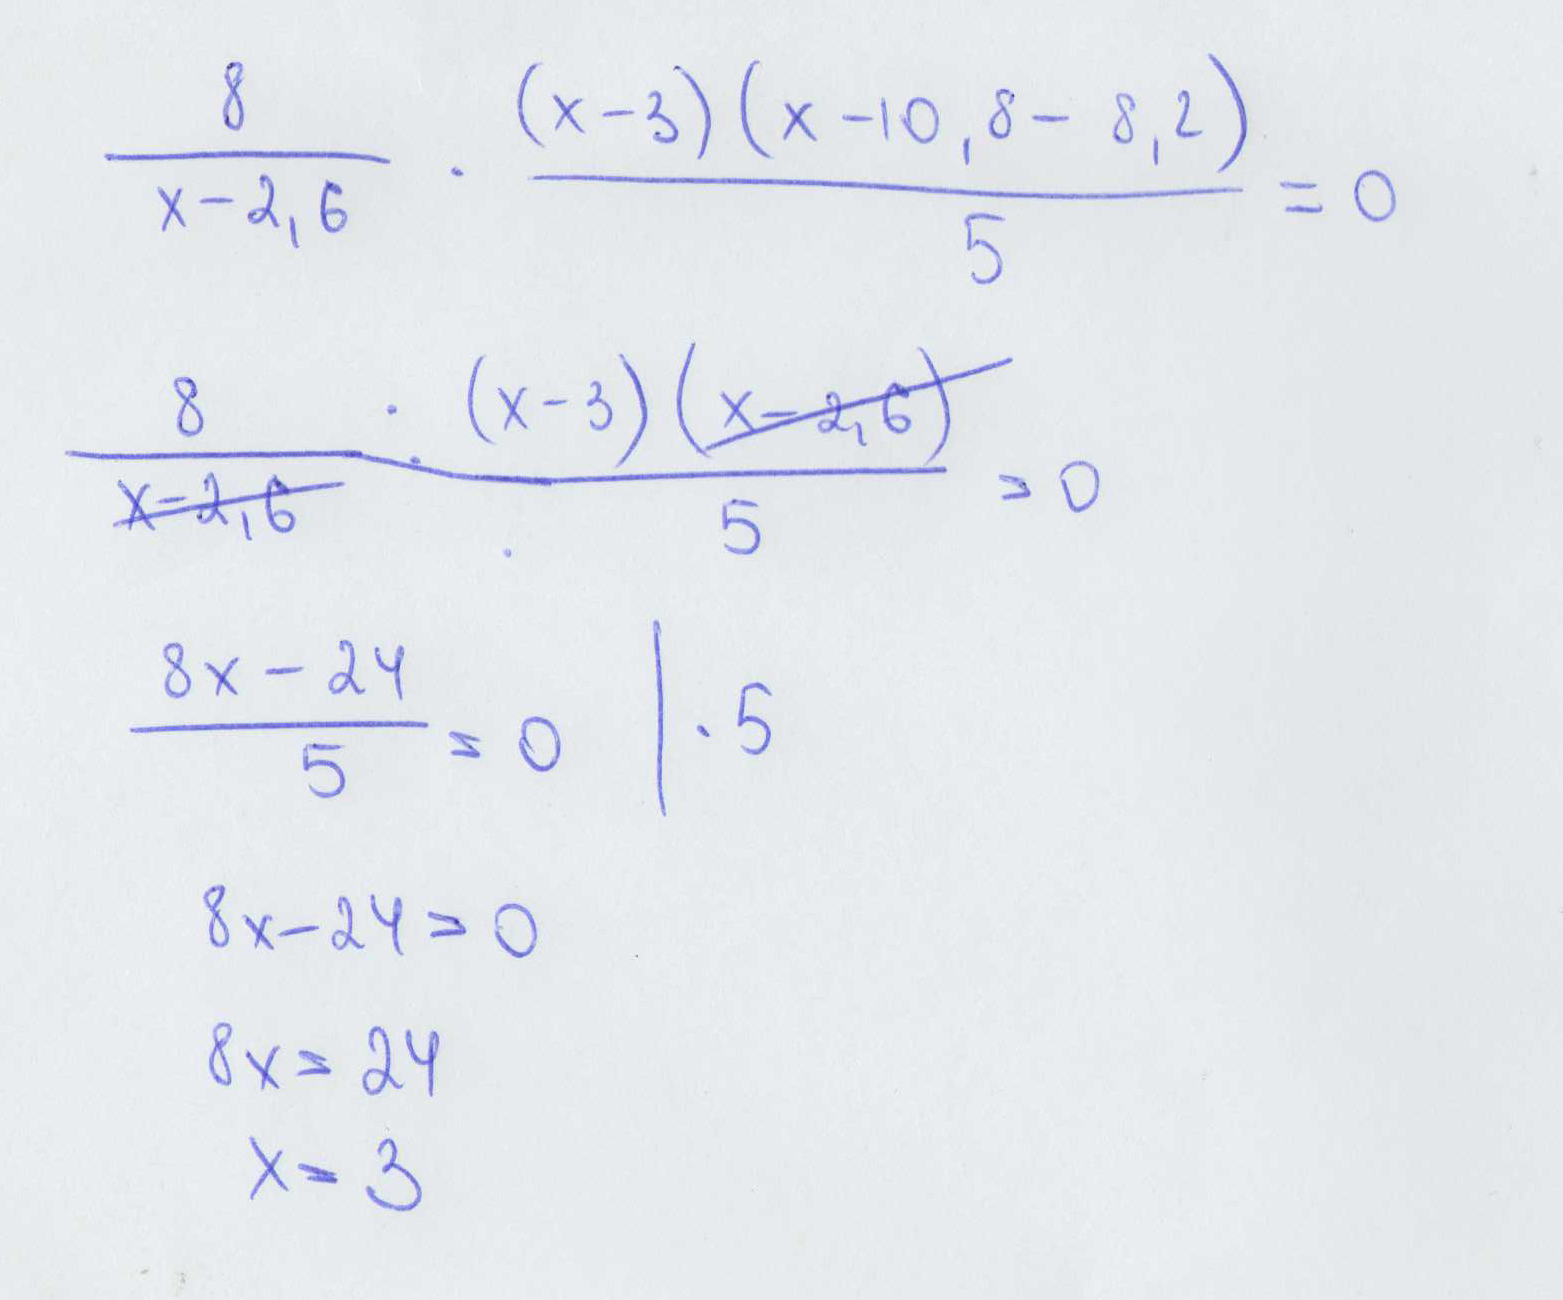 8/(x-2,6) · (x-3)(x-10,8-8,2)/5 = 0
8/(x-2,6) · (x-3)(x-2,6)/5 = 0
(8x-24)/5 = 0 | · 5
8x-24 = 0
8x = 24
x = 3